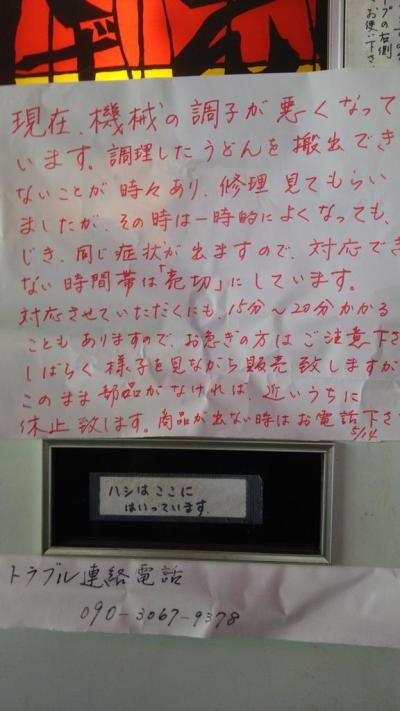 プの右側
お使い下さい
現在、機械の調子が悪くなって
います。調理したうどんを搬出でき
ないことが時々あり、修理見てもらい
ましたが、その時は一時的によくなっても、
じき、同じ症状が出ますので、対応でき
ない時間帯は「売切」にしています。
対応させていただくにも、15分〜20分かかる
こともありますので、お急ぎの方はご注意下さ
しばらく様子を見ながら販売致しますが
このまま部品がなければ、近いうちに
休止致します。商品が出ない時はお電話下さ
5/14
ハシはここに
はいっています。
トラブル連絡電話
090-3067-9378